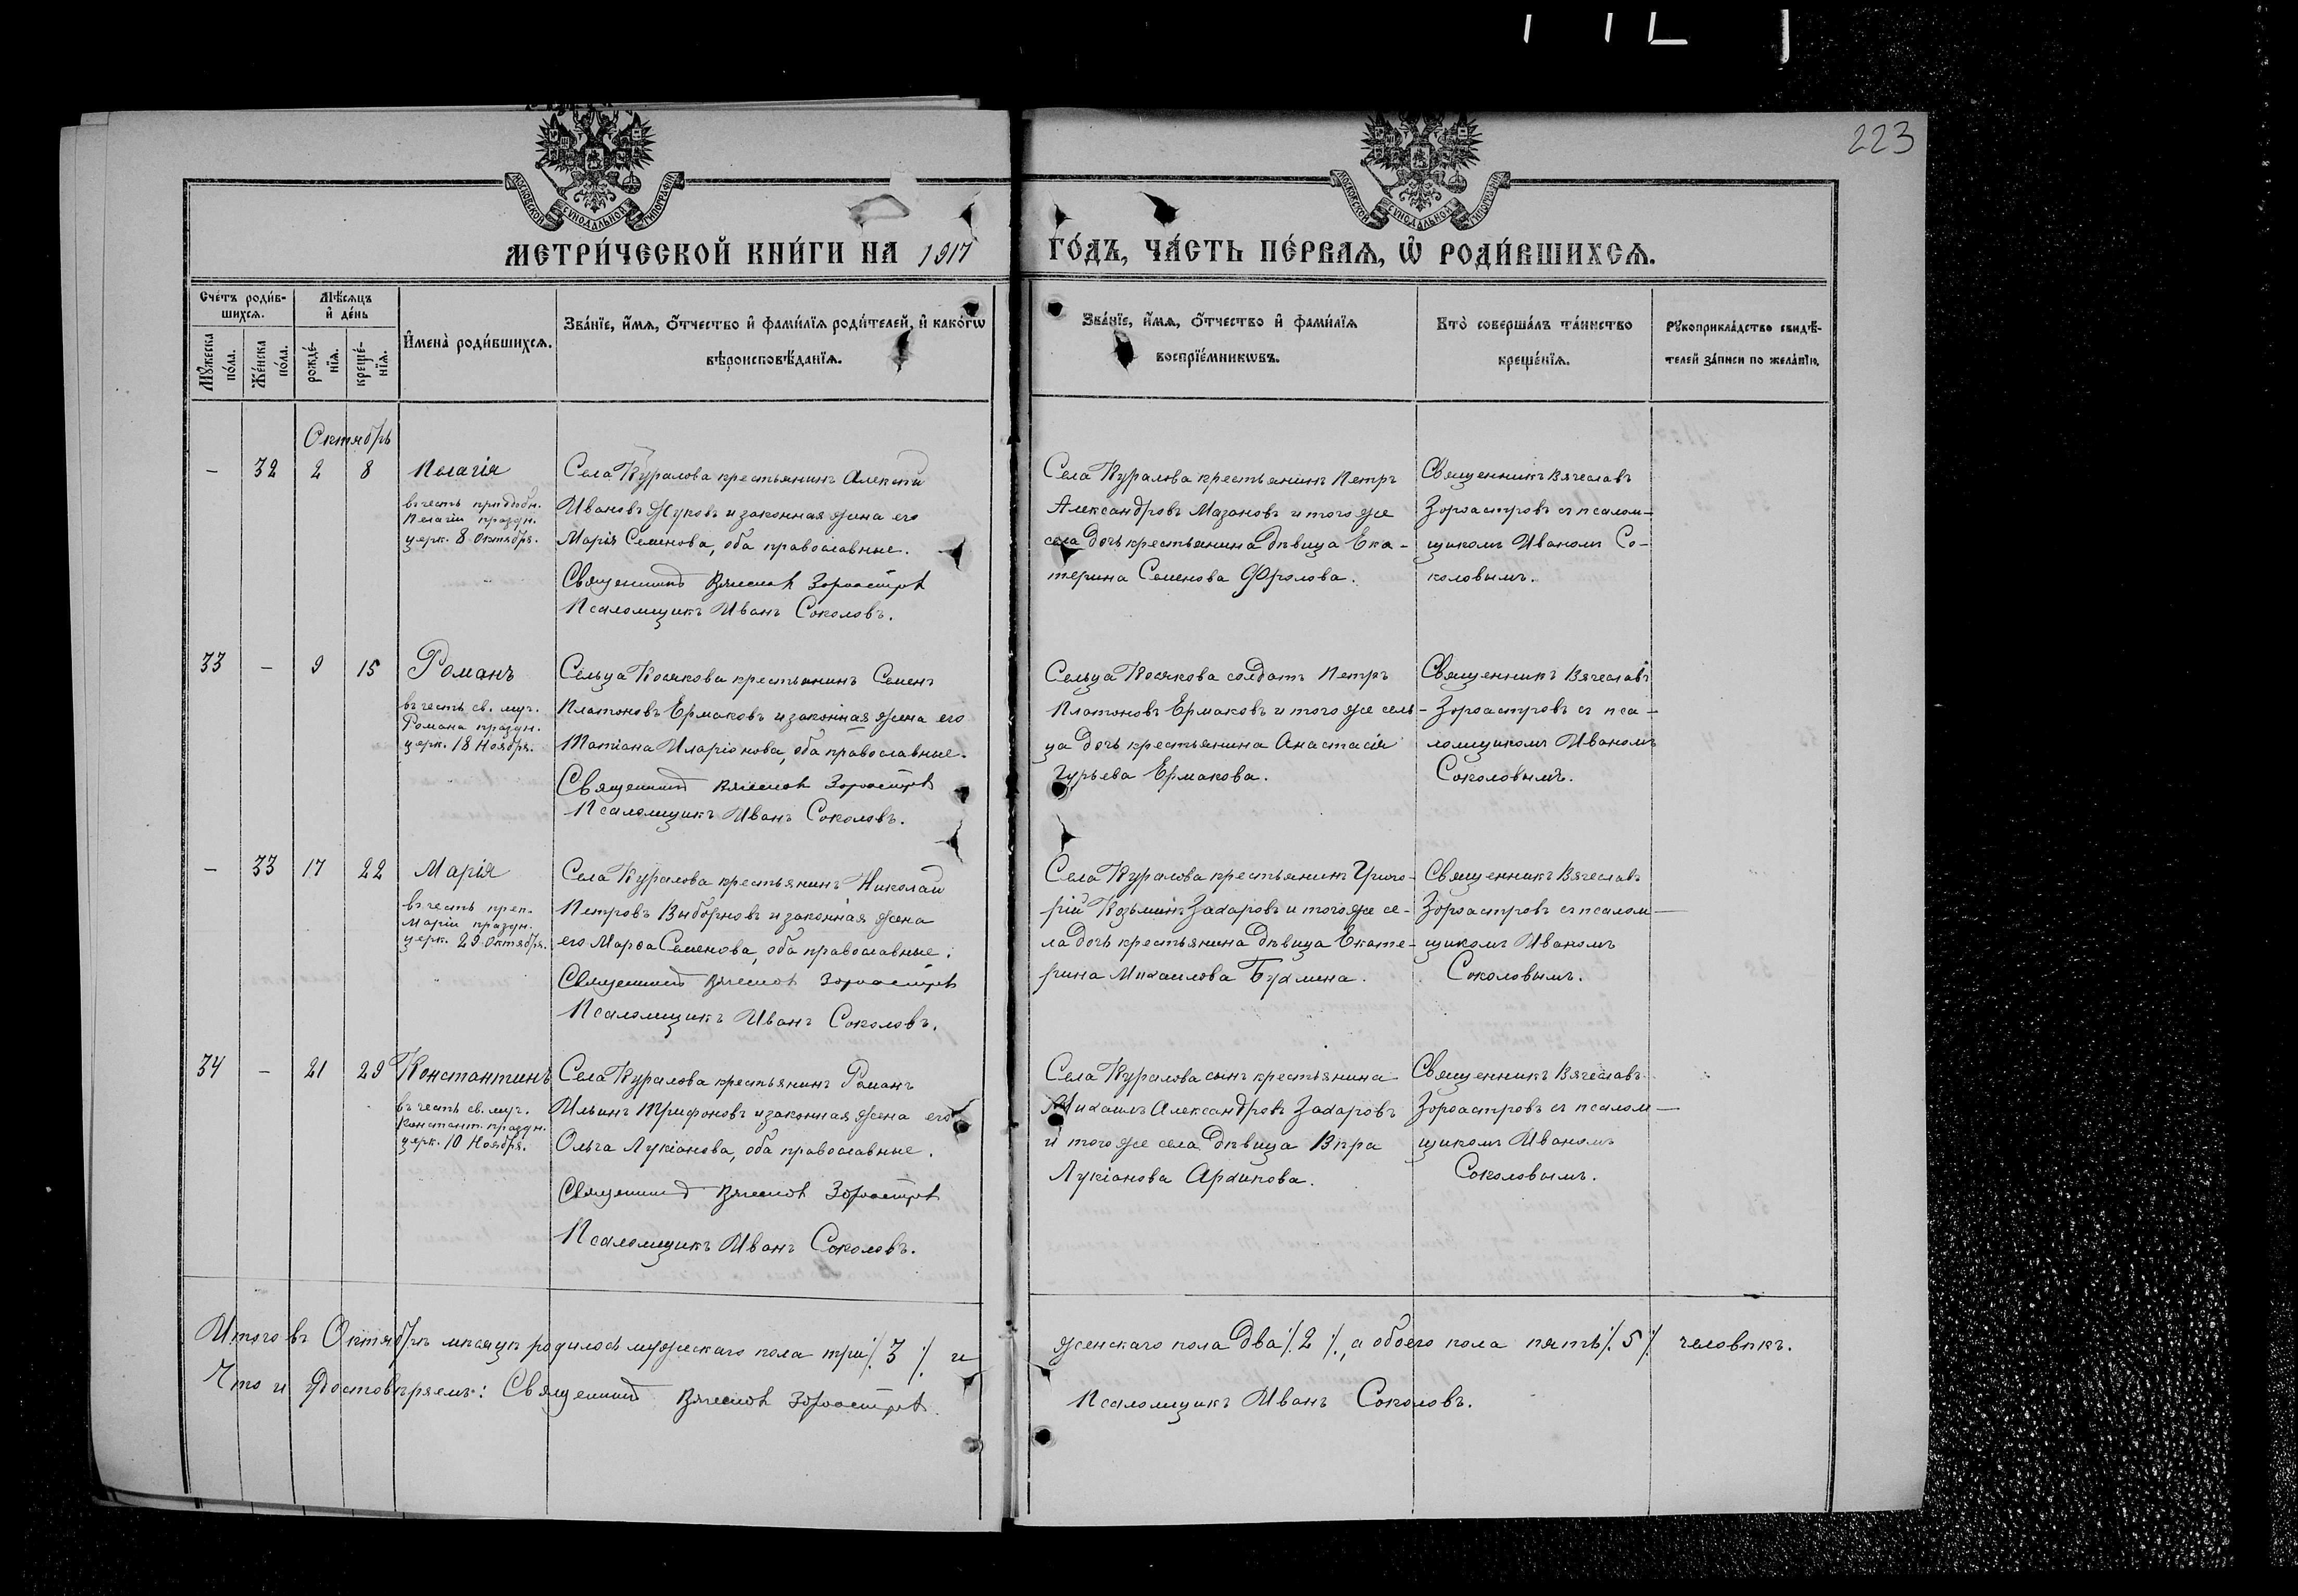 223
МОСКОВСКОЙ СУНОДАЛЬНОЙ ТИПОГРАФІИ
МОСКОВСКОЙ СУНОДАЛЬНОЙ ТИПОГРАФІИ
МЕТРИ́ЧЕСКОЙ КНИ́ГИ НА 1917 ГО́ДЪ, ЧА́СТЬ ПЕ́РВАѦ, Ѽ РОДИ́ВШИХСѦ.
Сче́тъ роди́в-
шихсѧ.
Мѣ́сѧцъ
и҆ де́нь
Мꙋ́жеска
по́ла.
Же́нска
по́ла.
рожде́-
нїѧ.
креще́-
нїѧ.
И҆мена̀ роди́вшихсѧ.
Зва́нїе, и҆́мѧ, ѻ҆́тчество и҆ фами́лїѧ роди́телей, и҆ како́гѡ
вѣроисповѣ́данїѧ.
Зва́нїе, и҆́мѧ, ѻ҆́тчество и҆ фами́лїѧ
воспрїе́мникѡвъ.
Кто̀ соверша́лъ та́инство
креще́нїѧ.
Рꙋкоприкла́дство свидѣ́-
телей за́писи по жела́нїю.
Октябрь
— 32 2 8 Пелагія
въ честь преподобн.
Пелагіи праздн.
церк. 8 Октября.
Села Куралова крестьянинъ Алексѣй
Ивановъ Жуковъ и законная жена его
Марія Семенова, оба православные.
Священникъ Вячеславъ Зороастровъ
Псаломщикъ Иванъ Соколовъ.
Села Куралова крестьянинъ Петръ
Александровъ Мазановъ и того же
села дочь крестьянина дѣвица Ека-
терина Семенова Фролова.
Священникъ Вячеславъ
Зороастровъ съ псалом-
щикомъ Иваномъ Со-
коловымъ.
33 — 9 15 Романъ
въ честь св. муч.
Романа праздн.
церк. 18 Ноября.
Сельца Косякова крестьянинъ Семенъ
Платоновъ Ермаковъ и законная жена его
Татіана Иларіонова, оба православные.
Священникъ Вячеславъ Зороастровъ
Псаломщикъ Иванъ Соколовъ.
Сельца Косякова солдатъ Петръ
Платоновъ Ермаковъ и того же сель-
ца дочь крестьянина Анастасія
Гурьева Ермакова.
Священникъ Вячеславъ
Зороастровъ съ пса-
ломщикомъ Иваномъ
Соколовымъ.
— 33 17 22 Марія
въ честь преп.
Маріи праздн.
церк. 29 Октября.
Села Куралова крестьянинъ Николай
Петровъ Выборновъ и законная жена
его Марѳа Семенова, оба православные.
Священникъ Вячеславъ Зороастровъ
Псаломщикъ Иванъ Соколовъ.
Села Куралова крестьянинъ Григо-
рій Козьминъ Захаровъ и того же се-
ла дочь крестьянина дѣвица Екате-
рина Михаилова Бухмина.
Священникъ Вячеславъ
Зороастровъ съ псалом-
щикомъ Иваномъ
Соколовымъ.
34 — 21 29 Константинъ
въ честь св. муч.
Констант. праздн.
церк. 10 Ноября.
Села Куралова крестьянинъ Романъ
Ильинъ Трифоновъ и законная жена его
Ольга Лукіанова, оба православные.
Священникъ Вячеславъ Зороастровъ
Псаломщикъ Иванъ Соколовъ.
Села Куралова сынъ крестьянина
Михаилъ Александровъ Захаровъ
и того же села дѣвица Вѣра
Лукіанова Архипова.
Священникъ Вячеславъ
Зороастровъ съ псалом-
щикомъ Иваномъ
Соколовымъ.
Итого въ Октябрѣ мѣсяцѣ родилось мужескаго пола три ./. 3 ./. и женскаго пола два ./. 2 ./., а обоего пола пять ./. 5 ./. человѣкъ.
Что и достовѣряемъ: Священникъ Вячеславъ Зороастровъ. Псаломщикъ Иванъ Соколовъ.